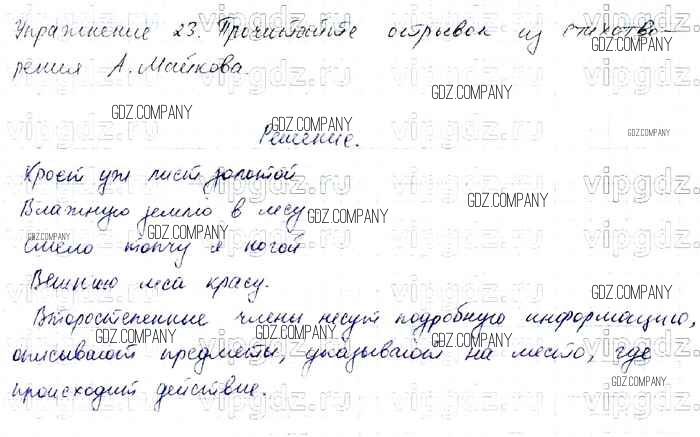 Упражнение 23. Прочитайте отрывок из стихотво-
рения А. Майкова.
Решение.
Кроет уж лист золотой
Влажную землю в лесу
Смело топчу я ногой
Вешнюю леса красу.
Второстепенные члены несут подробную информацию,
описывают предметы, указывают на место, где
происходит действие.